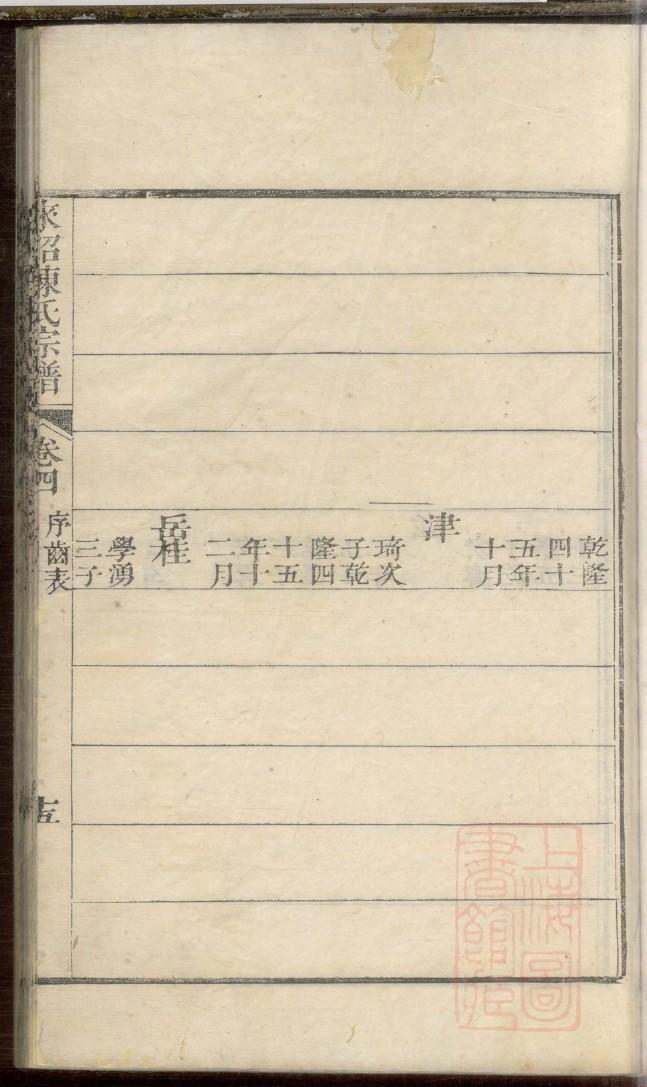 乾隆
四十
五年
十月
津
琦次
子乾
隆四
十五
年十
二月
岳桂
學湧
三子
陳氏宗譜
卷四
序齒表
十五
上海圖
書館藏